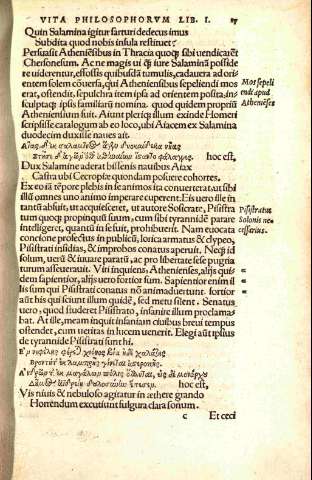 VITA PHILOSOPHORVM LIB. I. 17
Quin Salamina igitur sarturi dedecus imus
Subdita quod nobis insula restituet:
Persuasit Atheniēsibus in Thracia quoqᷓ sibi vendicarēt
Chersonesum. Ac ne magis ui qᷓ iure Salaminā posside
re uiderentur, effossis quibusdā tumulis, cadauera ad ori-
entem solem cōuersa, qui Atheniensibus sepeliendi mos
erat, ostendit. sepulchra item ipsa ad orientem posita, in-
sculptaqᷓ ipsis familiarū nomina. quod quidem propriū
Atheniensium fuit. Aiunt pleriqᷓ illum exinde Homeri
scripsisse catalogum ab eo loco, ubi Aiacem ex Salamina
duodecim duxisse naues ait.
hoc est,
Dux Salamine aderat bissenis nauibus Aiax
Castra ubi Cecropiæ quondam posuere cohortes.
Ex eo iā tēpore plebis in se animos ita conuerterat, ut sibi
illū omnes uno animo imperare cuperent. Eis uero ille in
tantū abfuit, ut acquiesceret, ut autore Sosicrate, Pisistra
tum quoqᷓ propinquū suum, cum sibi tyrannidē parare
intelligeret, quantū in se fuit, prohibuerit. Nam euocata
concione profectus in publicū, lorica armatus & clypeo,
Pisistrati insidias, & improbos conatus aperuit. Necqᷓ id
solum, uerū & iuuare paratū, ac pro libertate sese pugna
turum asseuerauit. Viri inquiens, Athenienses, alijs qui-
dem sapientior, alijs uero fortior sum. Sapientior enim il
lis sum qui Pisistrati conatus nō animaduertunt. fortior
aūt his qui sciunt illum quidē, sed metu silent. Senatus
uero, quod studeret Pisistrato, insanire illum proclama-
bat. At ille, meam inquit insaniam ciuibus breui tempus
ostendet, cum ueritas in lucem uenerit. Elegi aūt ipsius
de tyrannide Pisistrati sunt hi.
hoc est,
Vis niuis & nebuloso agitatur in æthere grando
Horrendum excutiunt fulgura clara sonum.
c Et ceci
Mos sepeli
endi apud
Atheniēses
Pisistratus
Solonis ne-
cessarius.